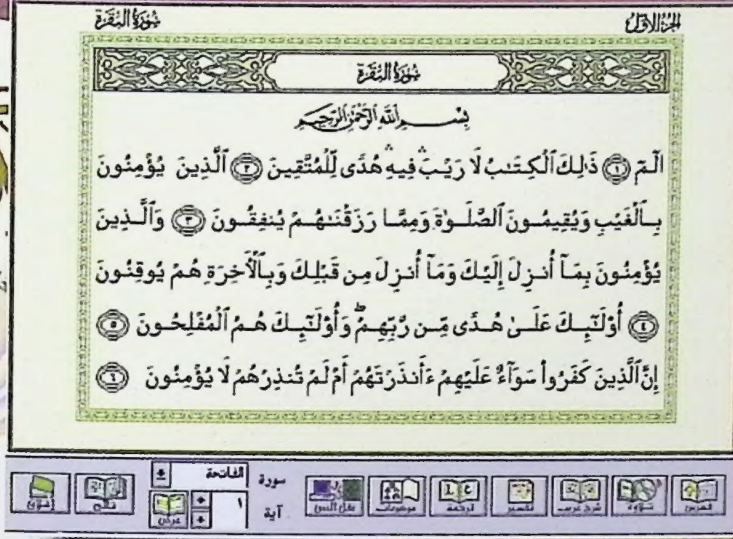 الجزء الاول
سورة البقرة
سورة البقرة
بسم الله الرحمن الرحيم
الٓمٓ ١ ذَٰلِكَ ٱلْكِتَـٰبُ لَا رَيْبَ ۛ فِيهِ ۛ هُدًى لِّلْمُتَّقِينَ ٢ ٱلَّذِينَ يُؤْمِنُونَ
بِٱلْغَيْبِ وَيُقِيمُونَ ٱلصَّلَوٰةَ وَمِمَّا رَزَقْنَـٰهُمْ يُنفِقُونَ ٣ وَٱلَّذِينَ
يُؤْمِنُونَ بِمَآ أُنزِلَ إِلَيْكَ وَمَآ أُنزِلَ مِن قَبْلِكَ وَبِٱلْأٓخِرَةِ هُمْ يُوقِنُونَ
٤ أُو۟لَـٰٓئِكَ عَلَىٰ هُدًى مِّن رَّبِّهِمْ ۖ وَأُو۟لَـٰٓئِكَ هُمُ ٱلْمُفْلِحُونَ ٥
إِنَّ ٱلَّذِينَ كَفَرُوا۟ سَوَآءٌ عَلَيْهِمْ ءَأَنذَرْتَهُمْ أَمْ لَمْ تُنذِرْهُمْ لَا يُؤْمِنُونَ ٦
فهرس
تلاوة
شرح غريب
تفسير
ترجمة
موضوعات
نقل النص
سورة الفاتحة
آية ١
عرض